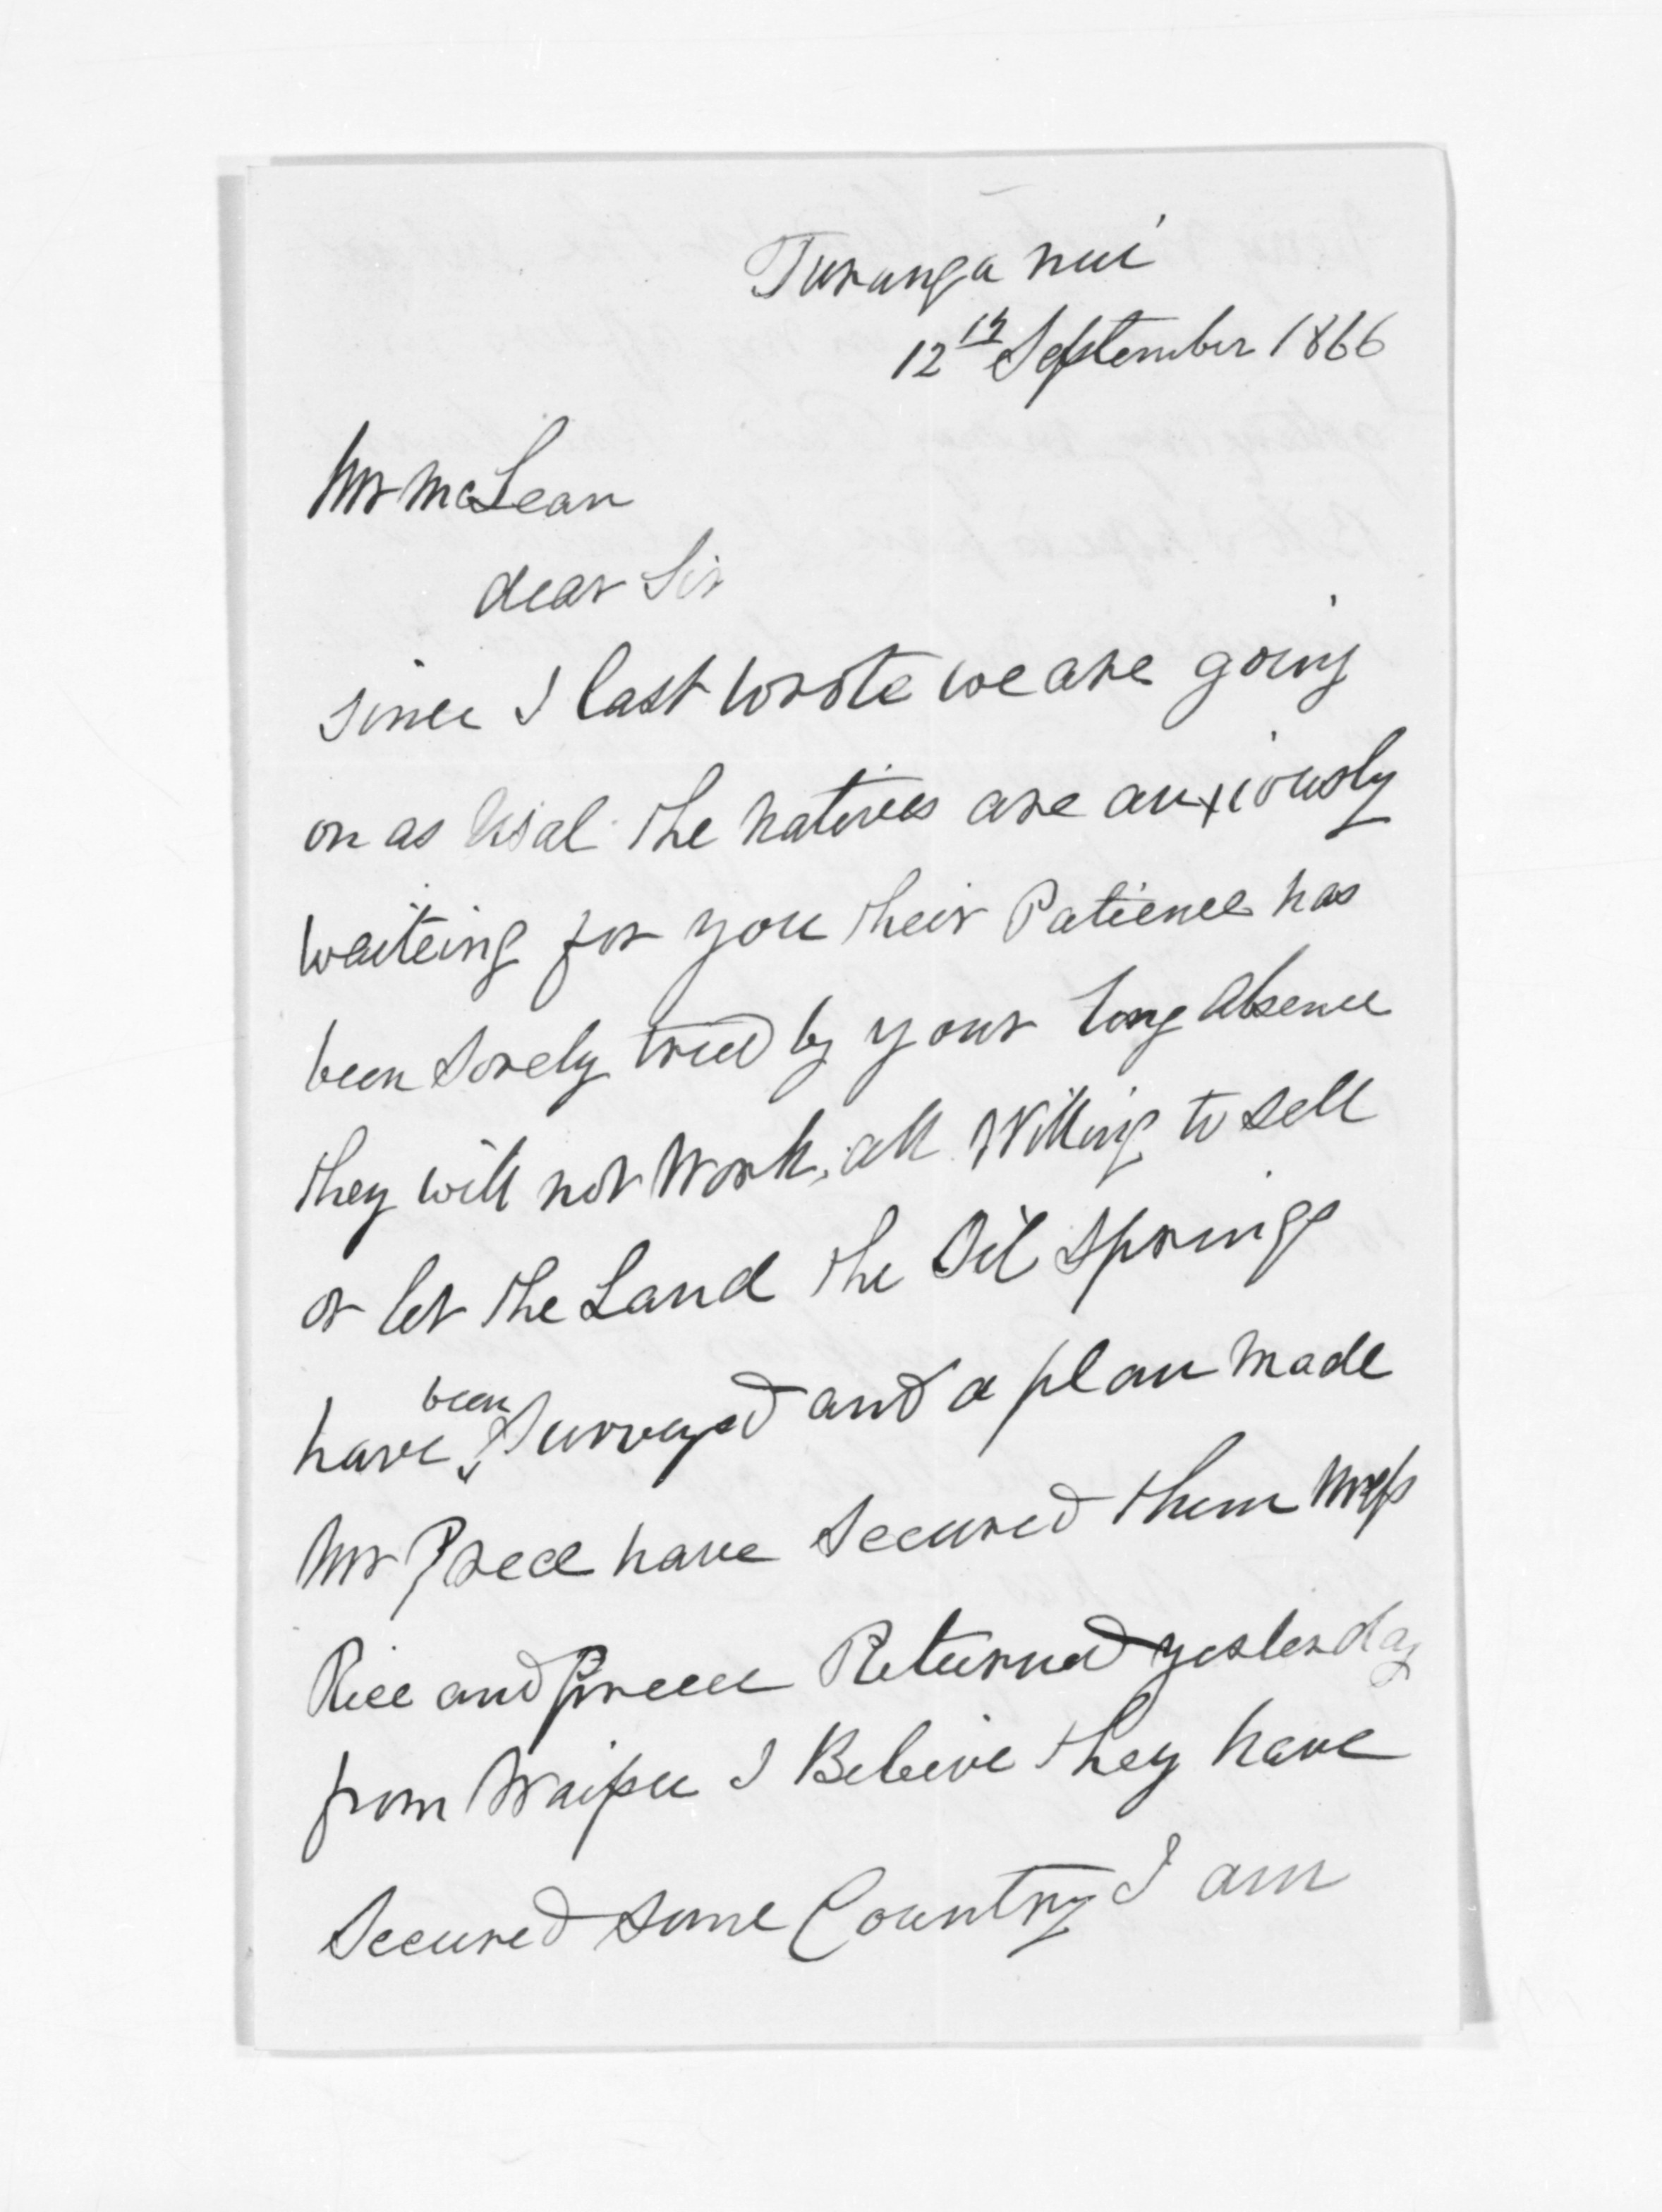 Turanga nui
12th September 1866
Mr McLean
dear Sir
since I last wrote we are going
on as Usal the natives are anxiously
waiteing for you their Patience has
been sorely tried by your long absence
they will not Work, all Willing to sell
or let the Land the Oil Springs
have been Surveyed and a plan made
Mr Preece have secured them Mess
Rice and Preece Returned yesterday
from Waipu I Beleive they have
Secured some Country I am